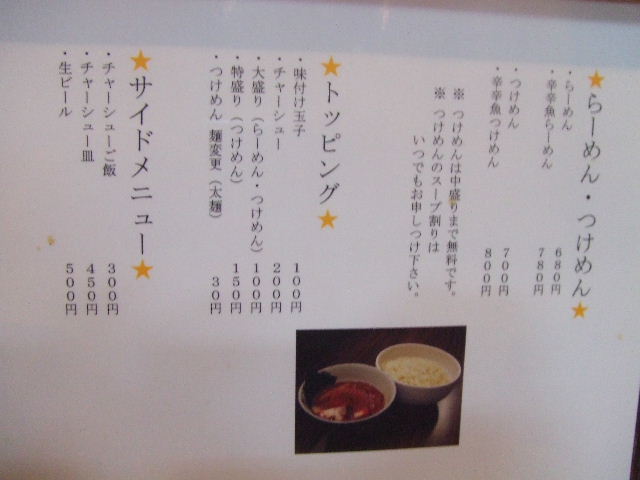 ★らーめん・つけめん★
・らーめん 680円
・辛辛魚らーめん 780円
・つけめん 700円
・辛辛魚つけめん 800円
※ つけめんは中盛りまで無料です。
※ つけめんのスープ割りは
いつでもお申しつけ下さい。
★トッピング★
・味付け玉子 100円
・チャーシュー 200円
・大盛り（らーめん・つけめん） 100円
・特盛り（つけめん） 150円
・つけめん 麺変更（太麺） 30円
★サイドメニュー★
・チャーシューご飯 300円
・チャーシュー皿 450円
・生ビール 500円